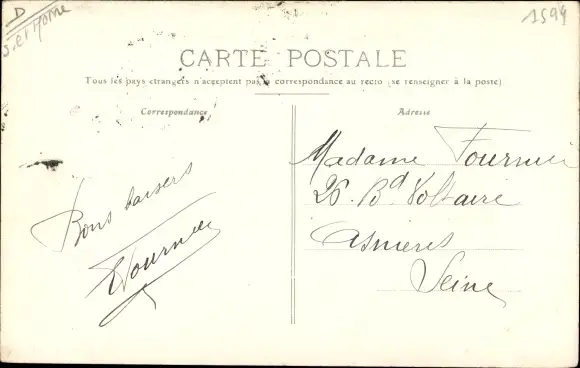 D
S. et Marne
1594
CARTE POSTALE
Tous les pays étrangers n'acceptent pas la correspondance au recto (se renseigner à la poste)
Correspondance
Adresse
Bons baisers
Fournier
Madame Fournier
26. Bd Voltaire
Asnieres
Seine